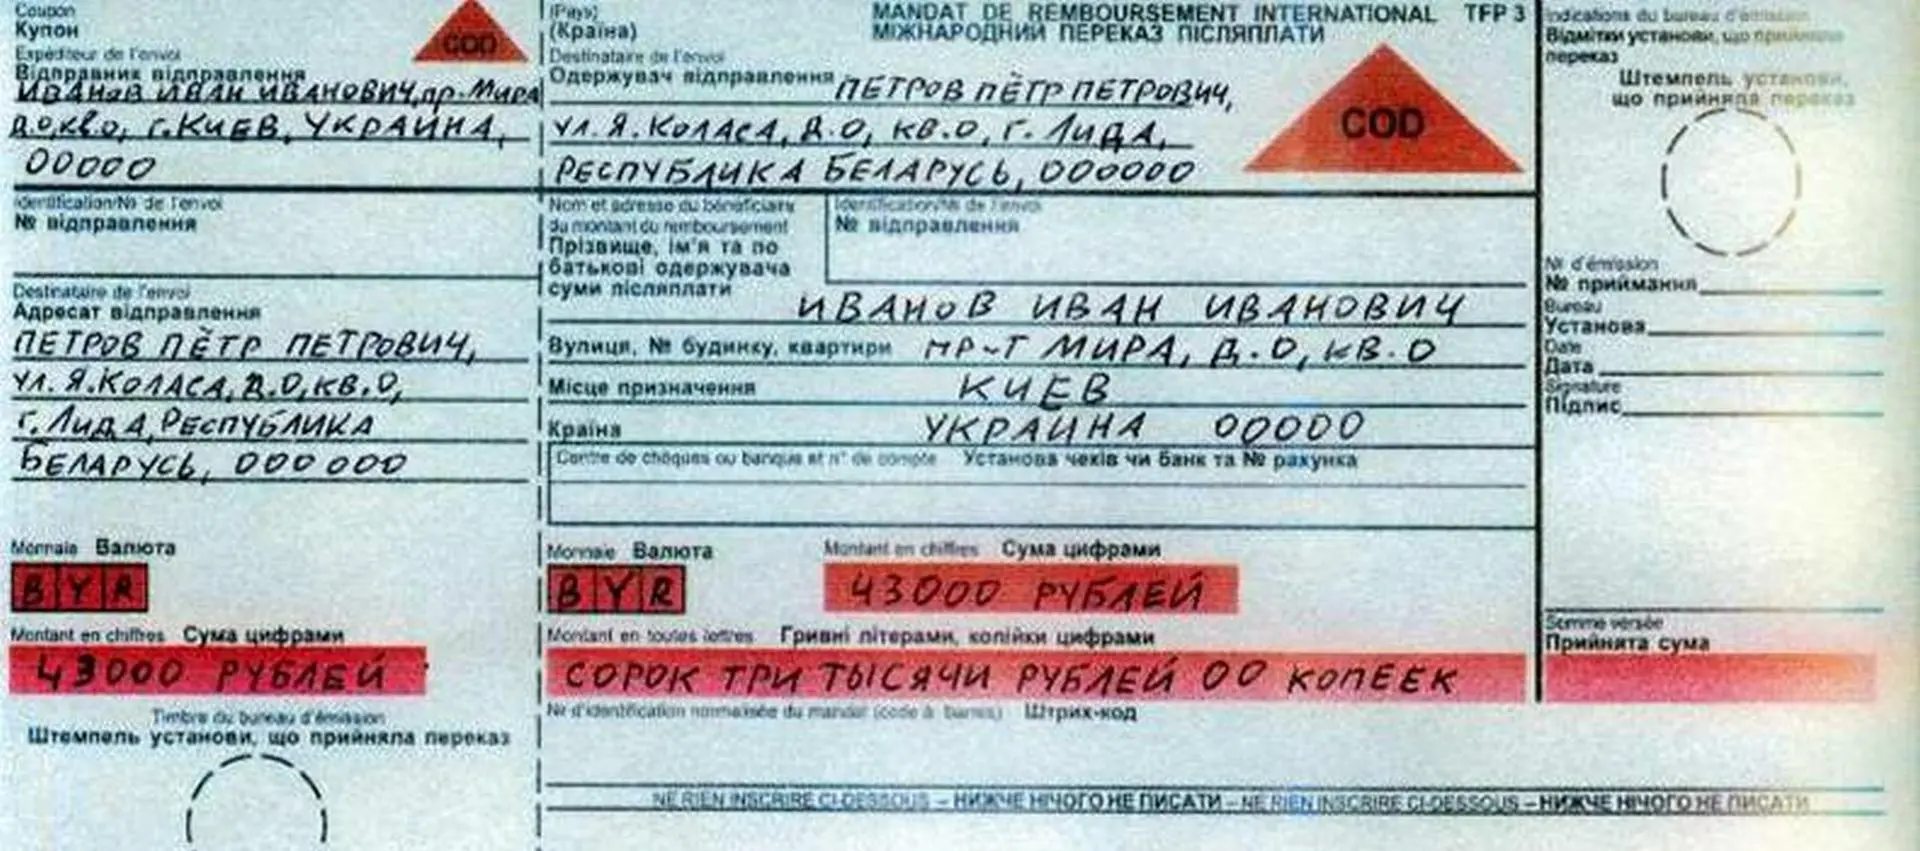 Coupon
Купон
COD
Expéditeur de l'envoi
Відправник відправлення
ИВАНОВ ИВАН ИВАНОВИЧ, пр-Мира
д.0, кв.0, г. КИЕВ, УКРАИНА,
00000
Identification/№ de l'envoi
№ відправлення
Destinataire de l'envoi
Адресат відправлення
ПЕТРОВ ПЁТР ПЕТРОВИЧ,
ул. Я.КОЛАСА, Д.0, КВ.0,
г. ЛИДА, РЕСПУБЛИКА
БЕЛАРУСЬ, 000000
Monnaie Валюта
BYR
Montant en chiffres Сума цифрами
43000 РУБЛЕЙ
Timbre du bureau d'émission
Штемпель установи, що прийняла переказ
(Pays)
(Країна)
MANDAT DE REMBOURSEMENT INTERNATIONAL TFP 3
МІЖНАРОДНИЙ ПЕРЕКАЗ ПІСЛЯПЛАТИ
Destinataire de l'envoi
Одержувач відправлення ПЕТРОВ ПЁТР ПЕТРОВИЧ,
ул. Я.КОЛАСА, Д.0, КВ.0, г. ЛИДА,
РЕСПУБЛИКА БЕЛАРУСЬ, 000000
COD
Nom et adresse du bénéficiaire
du montant du remboursement
Прізвище, ім'я та по
батькові одержувача
суми післяплати
Identification/№ de l'envoi
№ відправлення
ИВАНОВ ИВАН ИВАНОВИЧ
Вулиця, № будинку, квартири ПР-Т МИРА, Д.0, КВ.0
Місце призначення КИЕВ
Країна УКРАИНА 00000
Centre de chèques ou banque et n° de compte Установа чеків чи банк та № рахунка
Monnaie Валюта
BYR
Montant en chiffres Сума цифрами
43000 РУБЛЕЙ
Montant en toutes lettres Гривні літерами, копійки цифрами
СОРОК ТРИ ТЫСЯЧИ РУБЛЕЙ 00 КОПЕЕК
№ d'identification normalisée du mandat (code à barres) Штрих-код
NE RIEN INSCRIRE CI-DESSOUS – НИЖЧЕ НІЧОГО НЕ ПИСАТИ – NE RIEN INSCRIRE CI-DESSOUS – НИЖЧЕ НІЧОГО НЕ ПИСАТИ
Indications du bureau d'émission
Відмітки установи, що прийняла
переказ
Штемпель установи,
що прийняла переказ
№ d'émission
№ приймання
Bureau
Установа
Date
Дата
Signature
Підпис
Somme versée
Прийнята сума